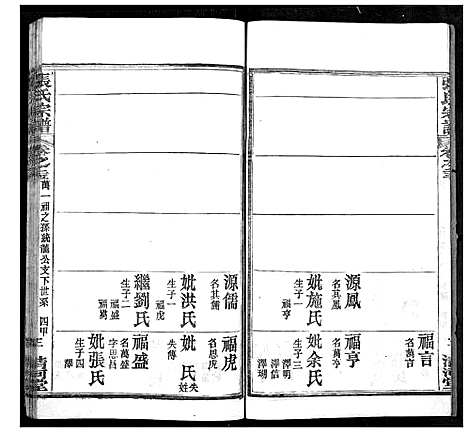 源鳳
名其鳳
妣施氏
生子一
福亨
源儒
名其儒
妣洪氏
生子一
福虎
繼劉氏
生子二
福盛
福萬
福言
名萬言
福亨
名萬亨
妣余氏
生子三
澤明
澤信
澤瑚
福虎
名恩虎
失傳
妣氏
失姓
福盛
名萬盛
字思昌
妣張氏
生子四
清河堂
張氏宗譜
卷之三
萬一福之孫統龍公支下世系
清河堂